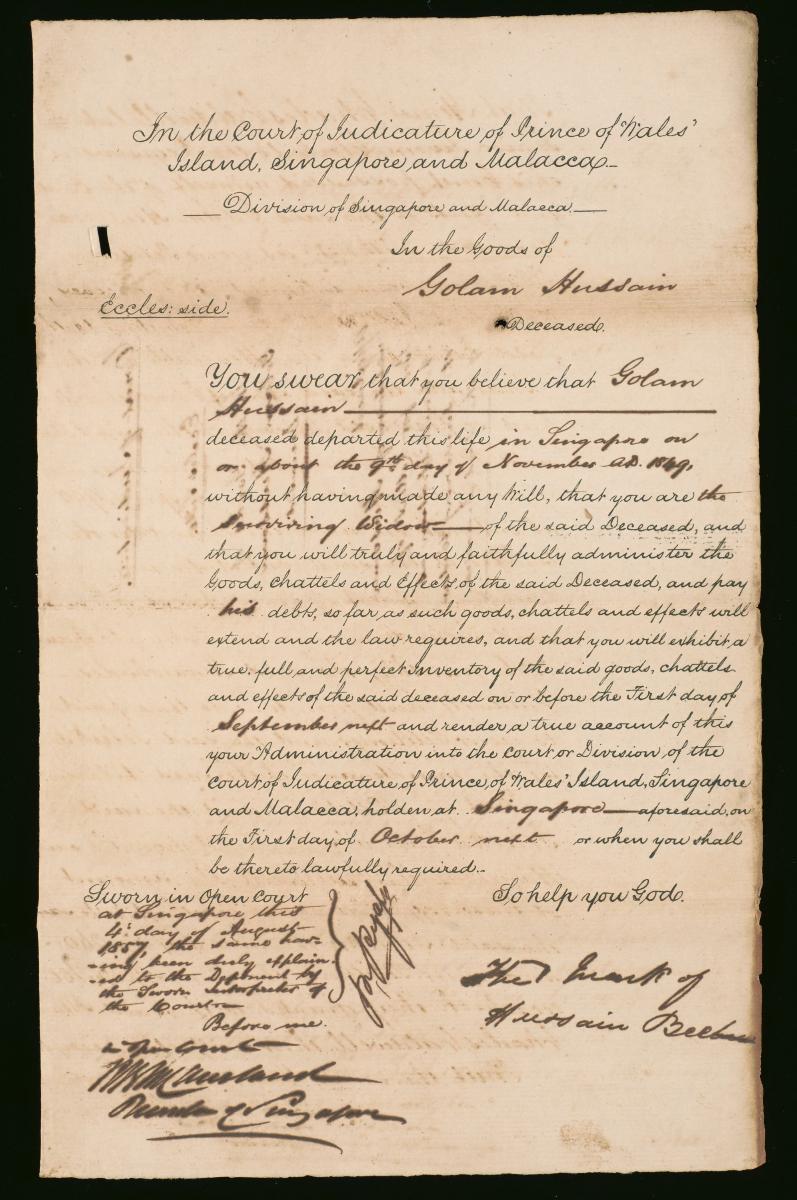 In the Court of Judicature of Prince of Wales'
Island, Singapore and Malacca
Division of Singapore and Malacca
In the Goods of
Golam Hussain
Eccles: side.
Deceased.
You swear that you believe that Golam
Hussain
deceased departed this life in Singapore on
or about the 9th day of November AD. 1849,
without having made any Will, that you are the
Surviving Widow of the said Deceased, and
that you will truly and faithfully administer the
Goods, Chattels and Effects, of the said Deceased, and pay
his debts, so far as such goods, chattels and effects will
extend and the law requires, and that you will exhibit a
true, full and perfect Inventory of the said goods, chattels
and effects of the said deceased on or before the First day of
September next and render a true account of this
your Administration into the Court or Division, of the
Court of Judicature of Prince of Wales' Island, Singapore
and Malacca, holden at Singapore aforesaid, on
the First day of October next or when you shall
be thereto lawfully required.
Sworn in Open Court
at Singapore this
4th day of August
1857, the same hav-
ing been duly explain-
ed to the Deponent by
the Sworn Interpreter of
the Court
Before me.
in Open Court
of Singapore
So help you God.
The Mark of
Hussain Beebee